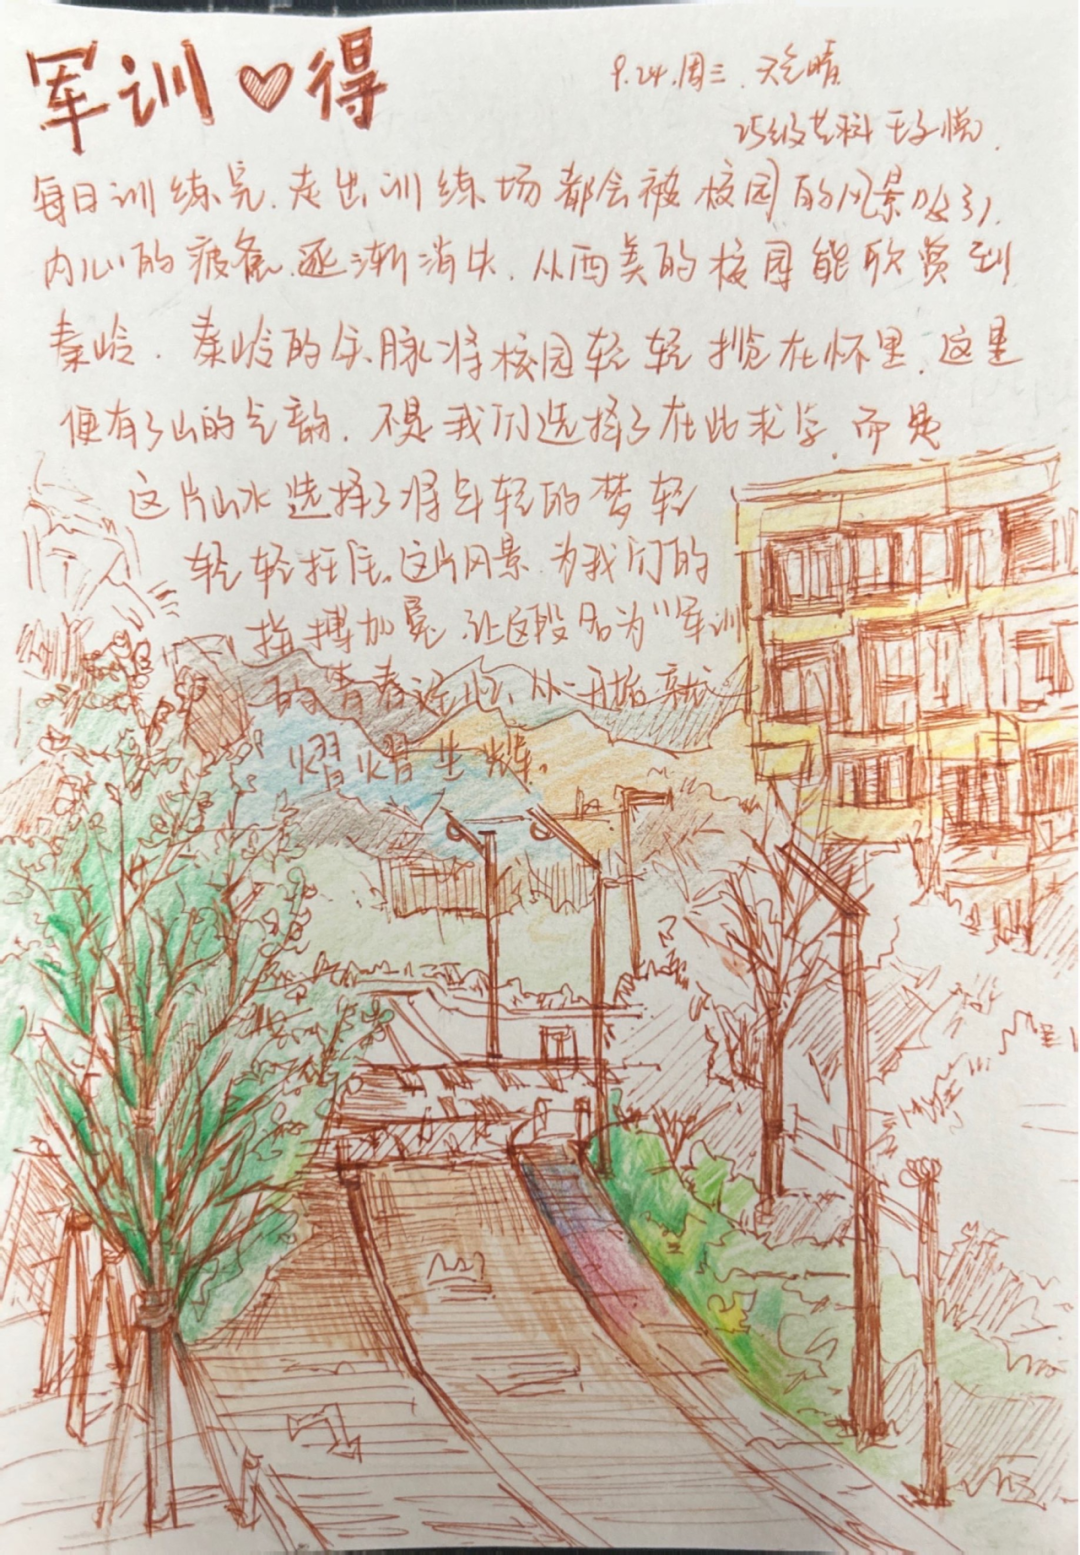 军训♡得
9.24.周三.天气晴
25级艺科 王子悦.
每日训练完.走出训练场都会被校园的风景吸引,
内心的疲惫.逐渐消失.从西美的校园能欣赏到
秦岭.秦岭的余脉将校园轻轻揽在怀里.这里
便有了山的气韵.不是我们选择了在此求学.而是
这片山水选择了将年轻的梦轻
轻轻托住.这片风景.为我们的
拼搏加冕.让这段名为“军训
的青春记忆,从一开始就
熠熠生辉。